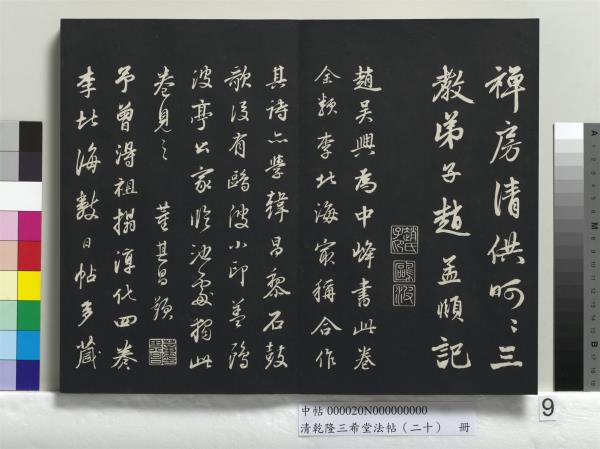 禅房清供呵〻三
教弟子趙孟頫記
趙氏子昂
鷗波
趙吳興為中峰書此卷
全類李北海冣稱合作
其詩亦學韓昌黎石鼓
歌後有鷗波小印盖鷗
波亭公家臨池處獨此
卷見之 董其昌題
予曾得祖搨淳化四卷
李北海數日帖多藏
中帖 000020N000000000
清乾隆三希堂法帖(二十) 冊
9